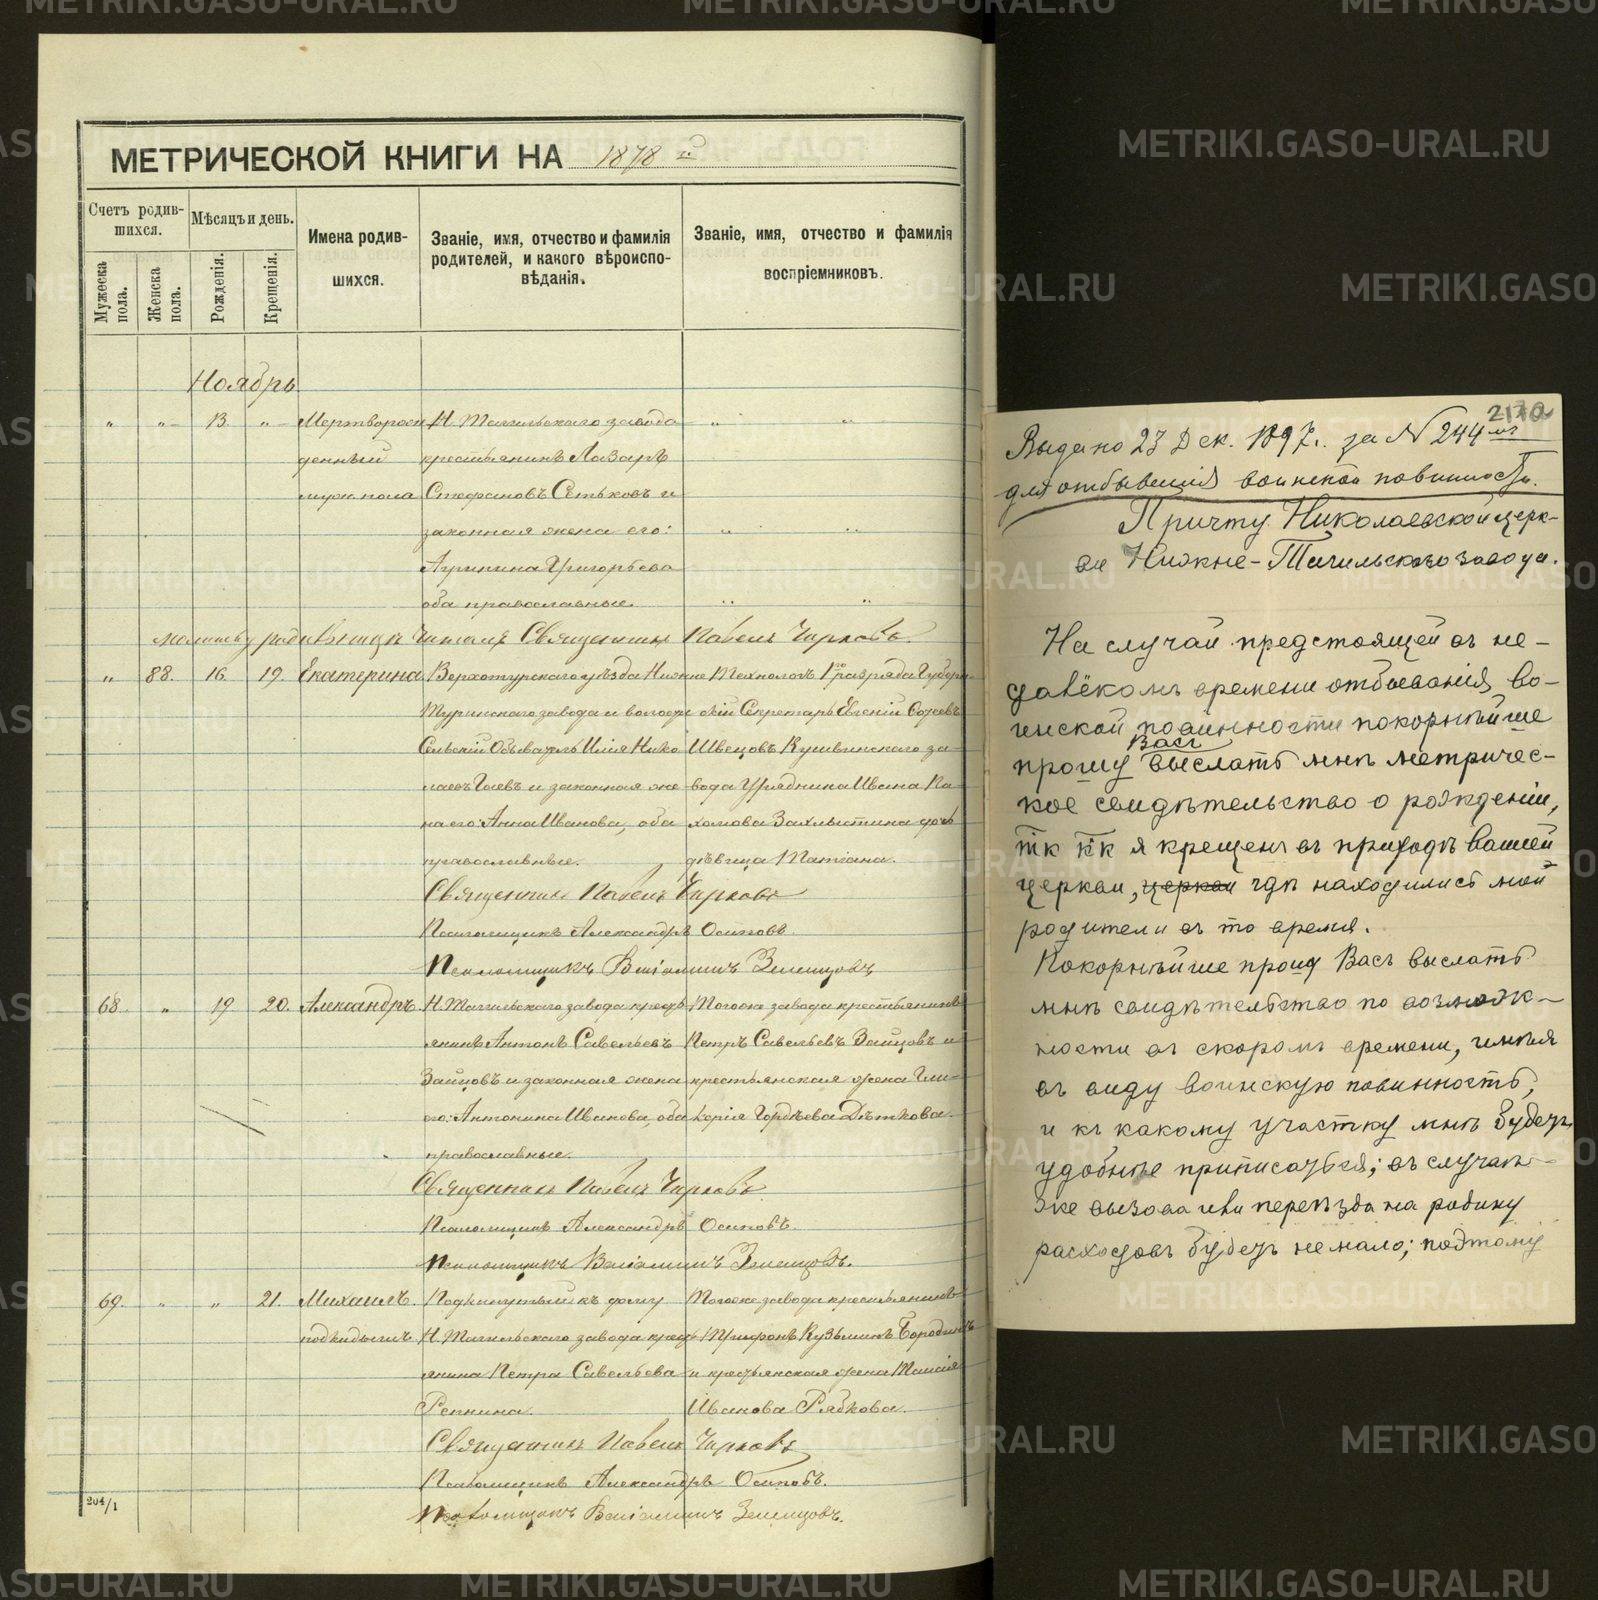 МЕТРИЧЕСКОЙ КНИГИ НА 1878 й
Счетъ родившихся.
Мѣсяцъ и день.
Имена родившихся.
Званіе, имя, отчество и фамилія родителей, и какого вѣроисповѣданія.
Званіе, имя, отчество и фамилія воспріемниковъ.
Мужеска пола.
Женска пола.
Рожденія.
Крещенія.
Ноябрь
" " 13. " Мертворож Н. Тагильскаго завода " "
денный крестьянинъ Лазарь
муж. пола Стефановъ Сетьковъ и
законная жена его: " "
Агрипина Григорьева
оба православные. " "
молитву родивницѣ читалъ Священникъ Павелъ Чирковъ.
" 88. 16. 19. Екатерина Верхотурскаго уѣзда Нижне Технологъ 1го разряда Губерн
Туринскаго завода и волости скій Секретарь Евгеній
Сельскій Обыватель Илія Нико Швецовъ Кушвинскаго за
лаевъ и законная же вода Урядника Ивана Па
на его: Анна Иванова, оба хомова Захлыстина дочь
православные. дѣвица Татіана.
Священникъ Павелъ Чирковъ
Псаломщикъ Александръ Осиповъ
Псаломщикъ Веніаминъ Земляницовъ
68. " 19 20. Александръ Н. Тагильскаго завода кресть Тогоже завода крестьянинъ
янинъ Антонъ Савельевъ Петръ Савельевъ Зайцовъ и
Зайцовъ и законная жена крестьянская жена Гли
его: Антонина Иванова, оба керія Гордѣева Дѣткова.
православные.
Священникъ Павелъ Чирковъ
Псаломщикъ Александръ Осиповъ.
Псаломщикъ Веніаминъ
69. " " 21. Михаилъ Подкинутый къ дому Тогоже завода крестьянинъ
подкидышъ Н. Тагильскаго завода кресть Трифонъ Кузьминъ Бородинъ
янина Петра Савельева и крестьянская жена Таисія
Репнина. Иванова Рябкова.
Священникъ Павелъ Чирковъ
Псаломщикъ Александръ Осиповъ.
Псаломщикъ Веніаминъ
204/1
217а
Выдано 23 Дек. 1897 г. за № 244
для отбыванія воинской повинности.
Причту Николаевской церк-
ви Нижне-Тагильскаго завода.
На случай предстоящей въ не-
далёкомъ времени отбыванія во-
инской повинности покорнѣйше
прошу Васъ выслать мнѣ метричес-
кое свидѣтельство о рожденіи,
тк кк я крещенъ въ приходѣ вашей
церкви, церкви гдѣ находились мои
родители въ то время.
Покорнѣйше прошу Васъ выслать
мнѣ свидѣтельство по возмож-
ности въ скоромъ времени, имѣя
въ виду воинскую повинность,
и къ какому участку мнѣ будетъ
удобнѣе приписаться; въ случаѣ-
же вызова или переѣзда на родину
расходовъ будетъ не мало; поэтому
METRIKI.GASO-URAL.RU